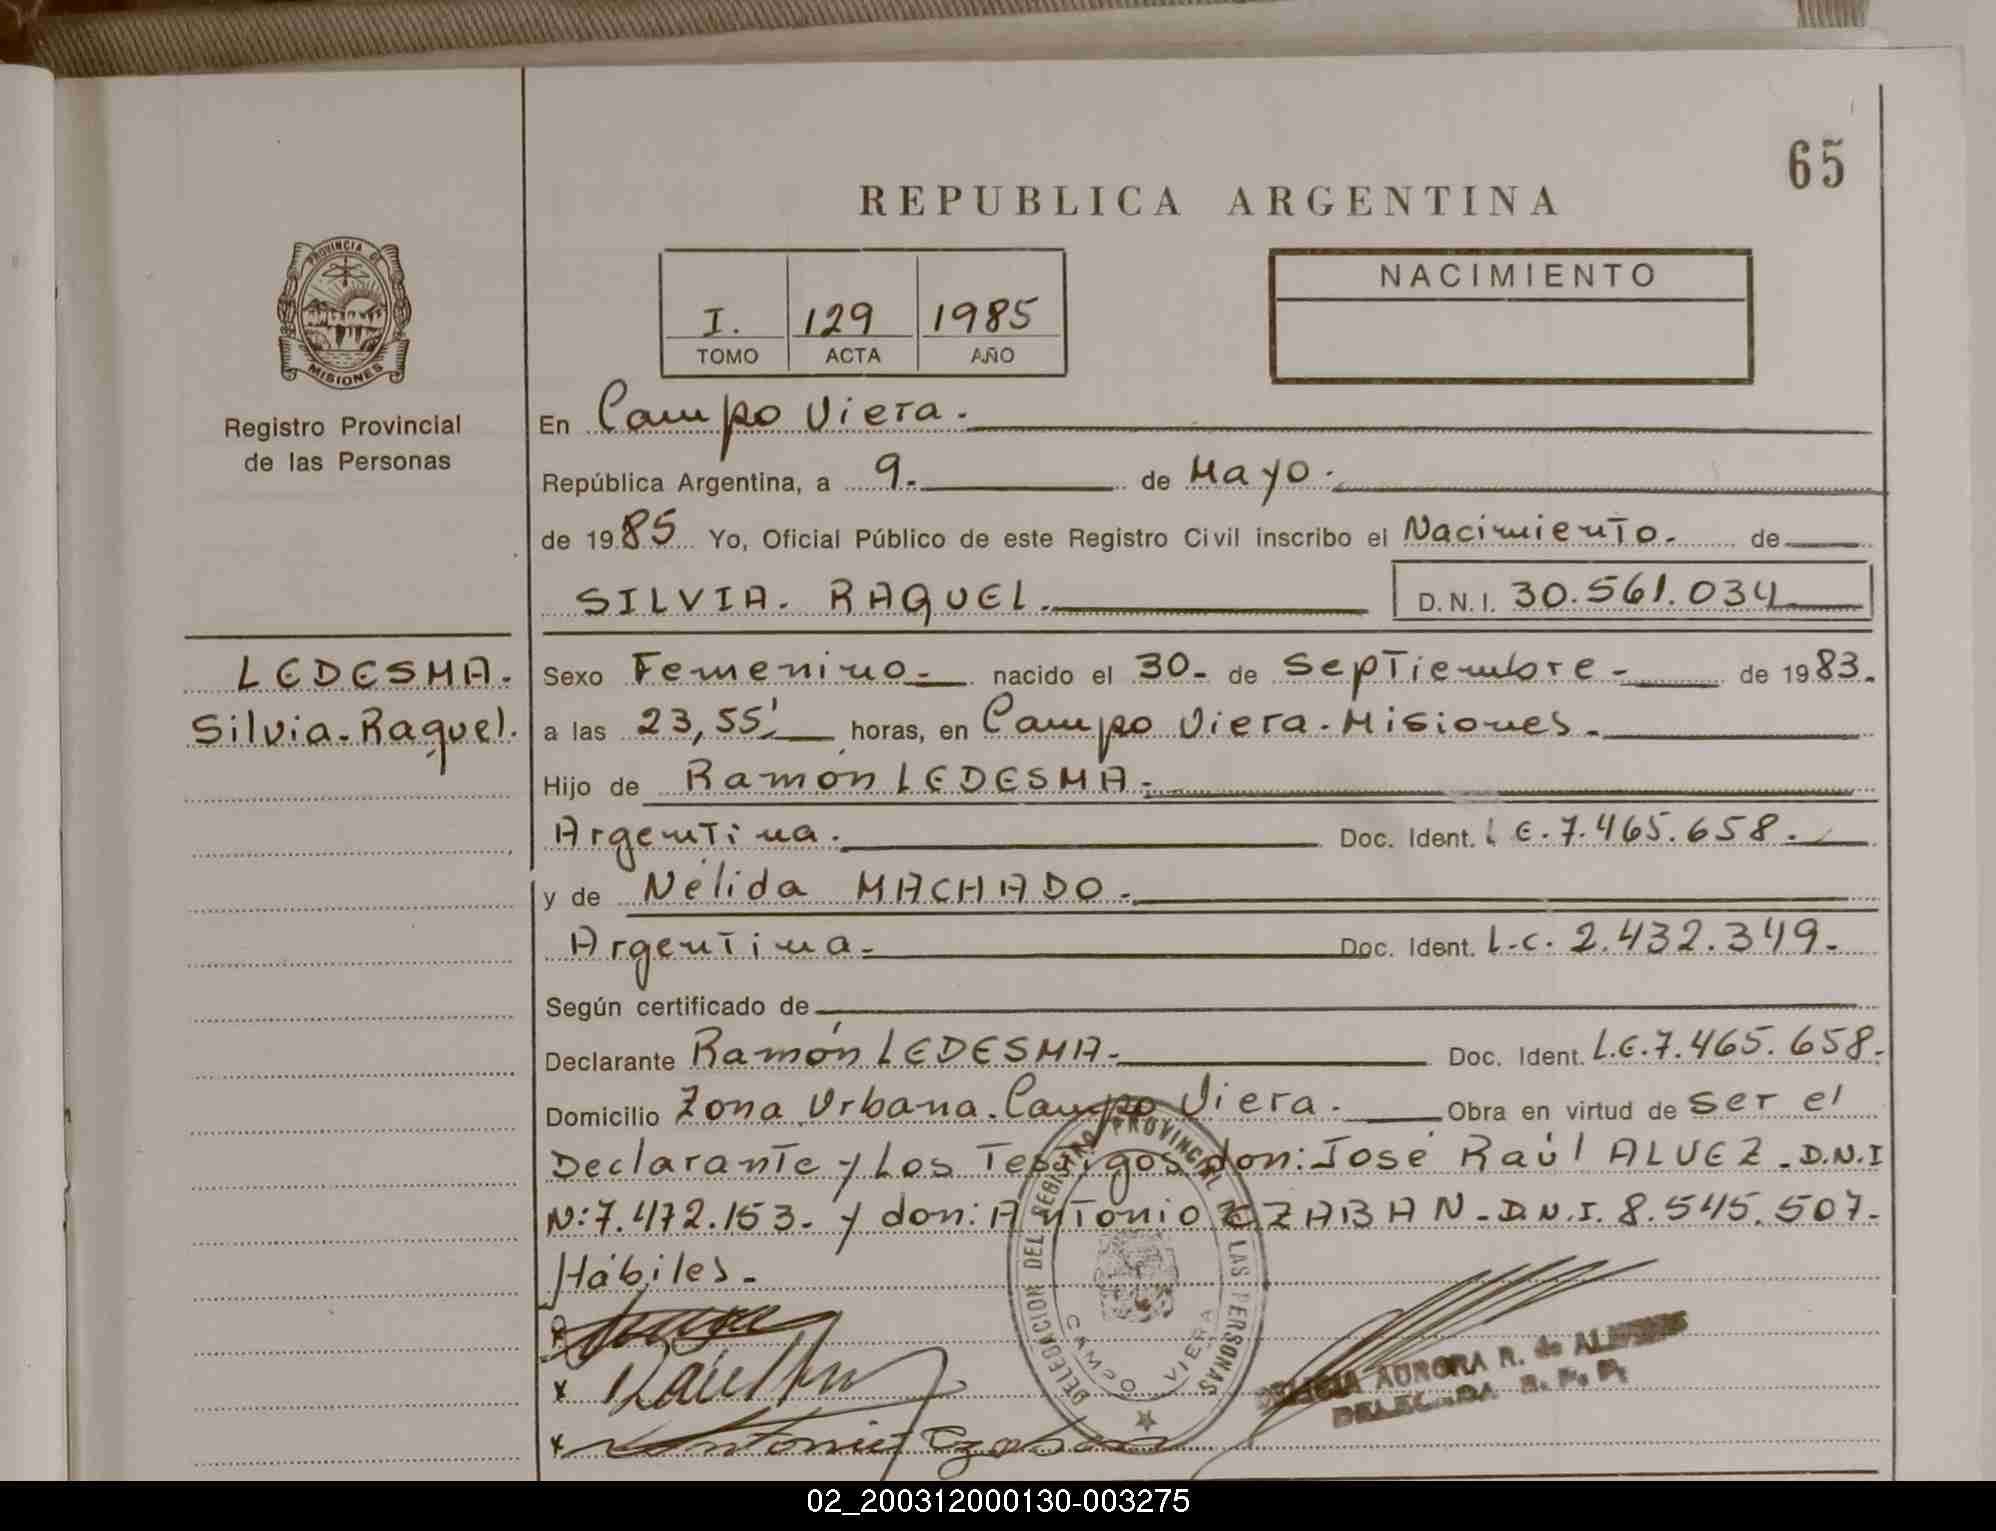 65
REPUBLICA ARGENTINA
PROVINCIA DE
MISIONES
Registro Provincial
de las Personas
I. 129 1985
TOMO ACTA AÑO
NACIMIENTO
En Campo Viera.
República Argentina, a 9. de Mayo.
de 1985 Yo, Oficial Público de este Registro Civil inscribo el Nacimiento. de
SILVIA. RAQUEL. D.N.I. 30.561.034
LEDESMA.
Silvia. Raquel.
Sexo Femenino nacido el 30 de Septiembre de 1983.
a las 23,55' horas, en Campo Viera. Misiones.
Hijo de Ramón LEDESMA.
Argentina. Doc. Ident. L E. 7.465.658.
y de Nélida MACHADO.
Argentina. Doc. Ident. L.C. 2.432.349.
Según certificado de
Declarante Ramón LEDESMA. Doc. Ident. L.E. 7.465.658.
Domicilio Zona Urbana. Campo Viera. Obra en virtud de ser el
Declarante y Los Testigos don: José Raúl ALVEZ. D.N.I
N: 7.472.153. y don: Antonio EZABAN. D.N.I. 8.545.507.
Hábiles.
DELEGACION DEL REGISTRO PROVINCIAL DE LAS PERSONAS
CAMPO VIERA
Antonio Ezaban
AURORA R. de
DELEGADA R. P. P.
02_200312000130-003275